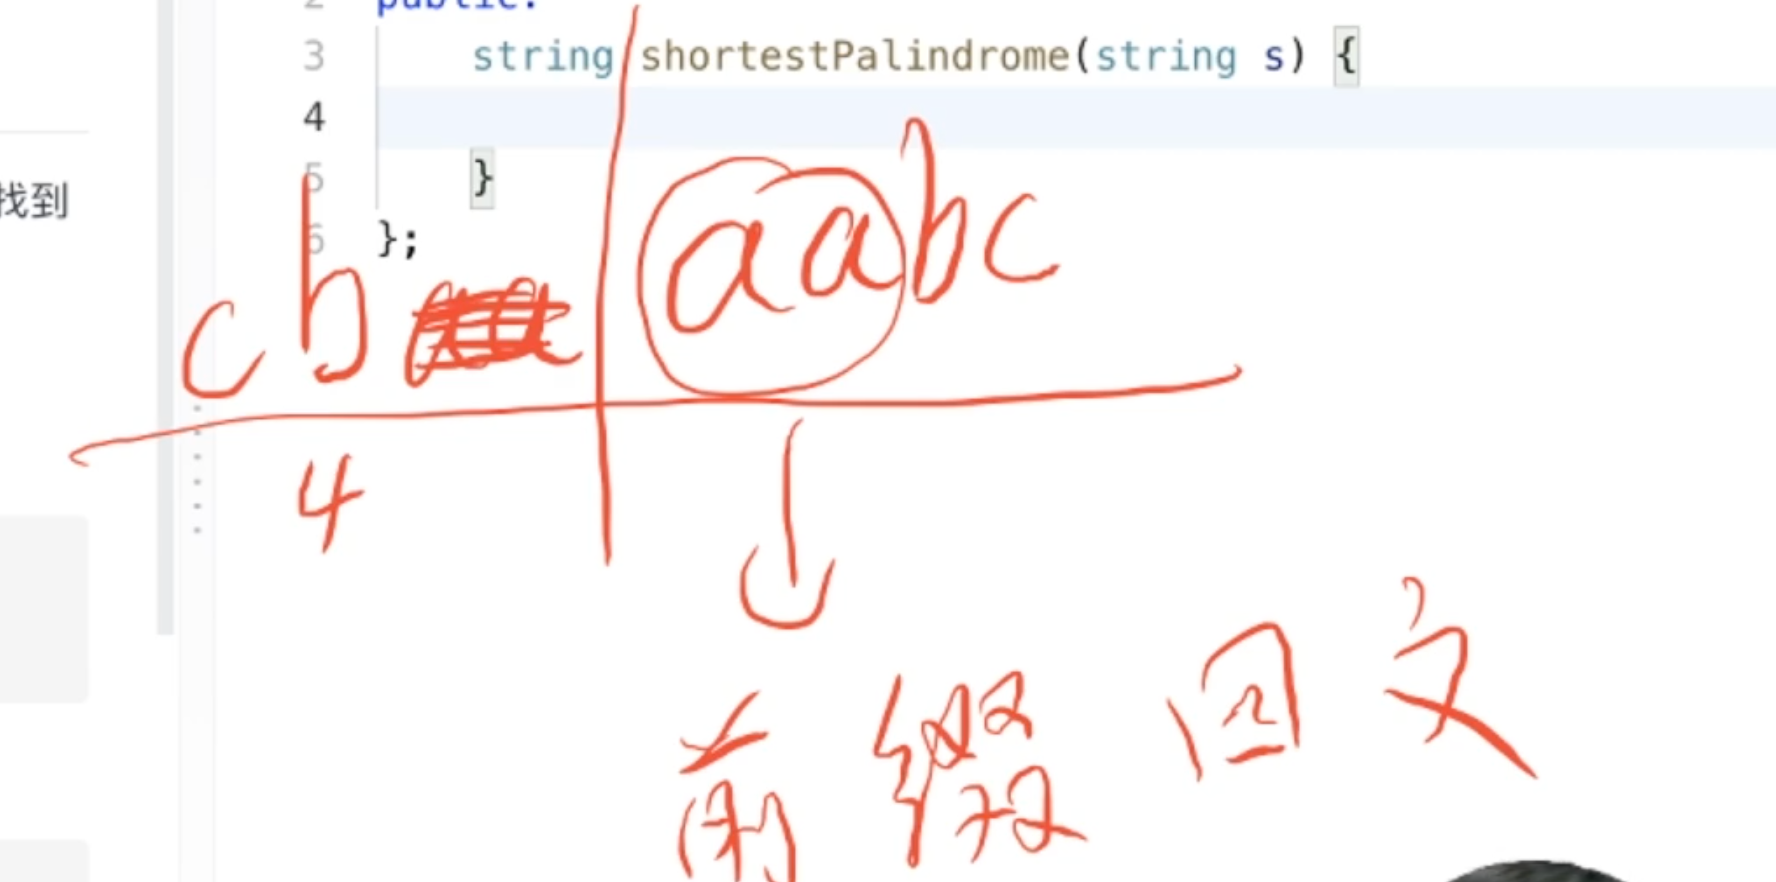 2 public:
3 string shortestPalindrome(string s) {
4
5 }
找到
6 };
cb aabc
4
前缀回文